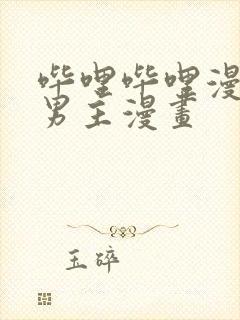 哔哩哔哩漫
男主漫畫
玉碎